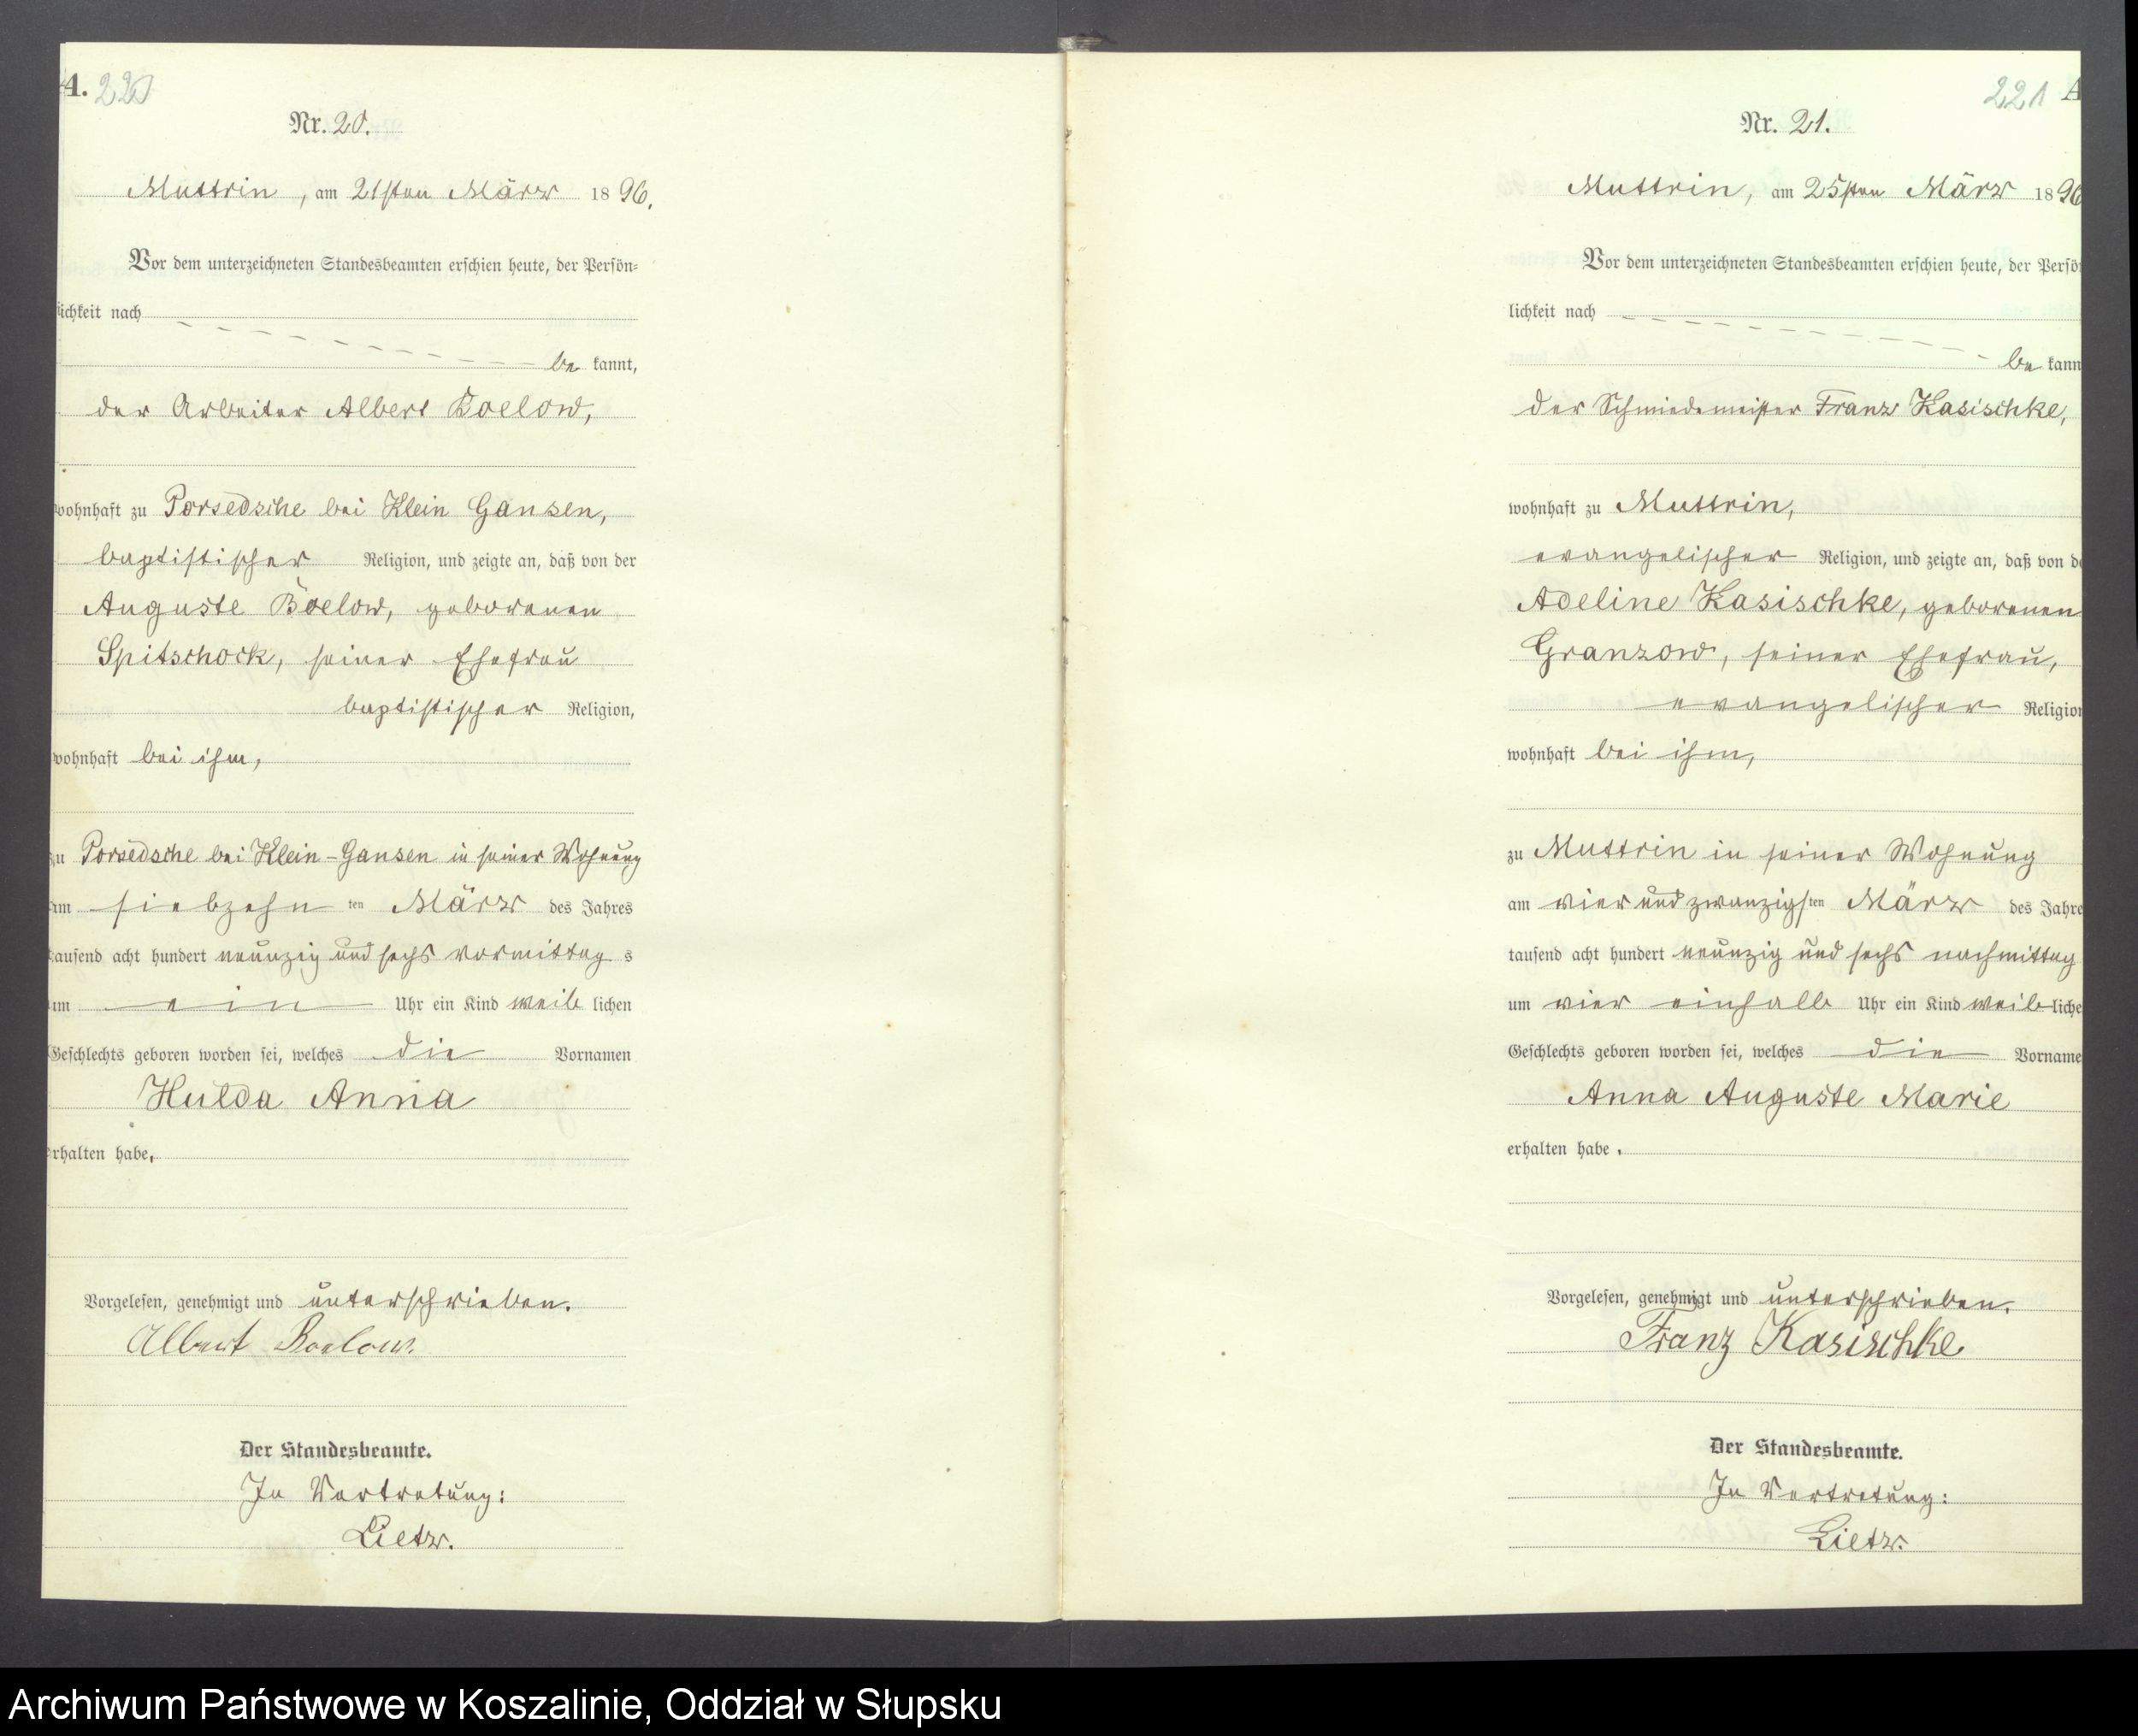 A. 220
Nr. 20.
Muttrin, am 21sten März 1896.
Vor dem unterzeichneten Standesbeamten erschien heute, der Persön-
lichkeit nach
be kannt,
der Arbeiter Albert Boelow,
wohnhaft zu Porsedsche bei Klein Gansen,
baptistischer Religion, und zeigte an, daß von der
Auguste Boelow, geborenen
Spitschock, seiner Ehefrau
baptistischer Religion,
wohnhaft bei ihm,
zu Porsedsche bei Klein-Gansen in seiner Wohnung
am siebzehn ten März des Jahres
tausend acht hundert neunzig und sechs vormittag s
um ein Uhr ein Kind weib lichen
Geschlechts geboren worden sei, welches die Vornamen
Hulda Anna
erhalten habe.
Vorgelesen, genehmigt und unterschrieben.
Albert Boelow.
Der Standesbeamte.
In Vertretung:
Lietz.
221 A
Nr. 21.
Muttrin, am 25sten März 1896
Vor dem unterzeichneten Standesbeamten erschien heute, der Persö
lichkeit nach
be kann
der Schmiedemeister Franz Kasischke,
wohnhaft zu Muttrin,
evangelischer Religion, und zeigte an, daß von de
Adeline Kasischke, geborenen
Granzow, seiner Ehefrau,
evangelischer Religion
wohnhaft bei ihm,
zu Muttrin in seiner Wohnung
am vier und zwanzigsten März des Jahre
tausend acht hundert neunzig und sechs nachmittag
um vier einhalb Uhr ein Kind weib liche
Geschlechts geboren worden sei, welches die Vorname
Anna Auguste Marie
erhalten habe.
Vorgelesen, genehmigt und unterschrieben.
Franz Kasischke
Der Standesbeamte.
In Vertretung:
Lietz.
Archiwum Państwowe w Koszalinie, Oddział w Słupsku